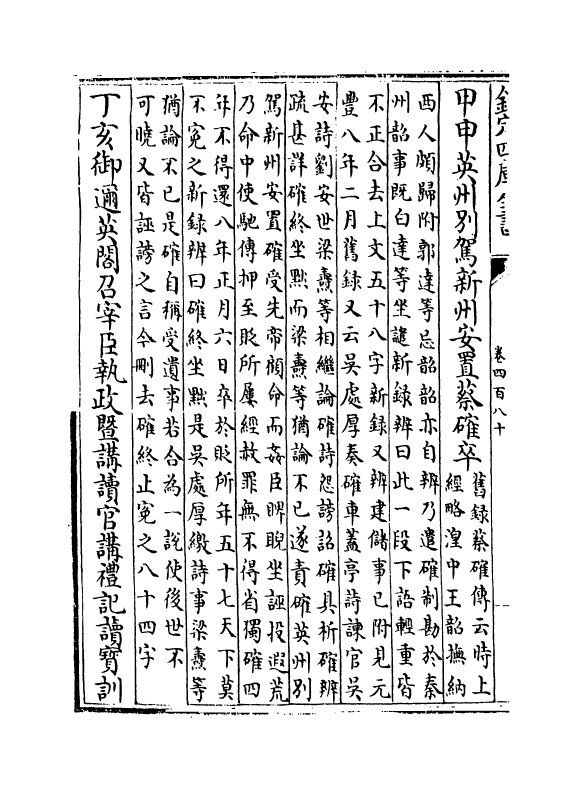 欽定四庫全書
卷四百八十
甲申英州別駕新州安置蔡確卒
舊録蔡確傳云時上
經略湟中王韶撫納
西人頗歸附郭逵等忌韶韶亦自辨乃遣確制勘於秦
州韶事既白逵等坐譴新録辨曰此一段下語輕重皆
不正合去上文五十八字新録又辨建儲事已附見元
豐八年二月舊録又云吳處厚奏確車蓋亭詩諫官吳
安詩劉安世梁燾等相繼論確詩怨謗詔確具析確辨
疏甚詳確終坐黜而梁燾等猶論不已遂責確英州别
駕新州安置確受先帝顧命而姦臣睥睨坐誣投遐荒
乃命中使馳傳押至貶所屢經赦罪無不得省獨確四
年不得還八年正月六日卒於貶所年五十七天下莫
不寃之新録辨曰確終坐黜是吳處厚繳詩事梁燾等
猶論不已是確自稱受遺事若合為一説使後世不
可曉又皆誣謗之言今刪去確終止寃之八十四字
丁亥御邇英閣召宰臣執政暨講讀官講禮記讀寶訓